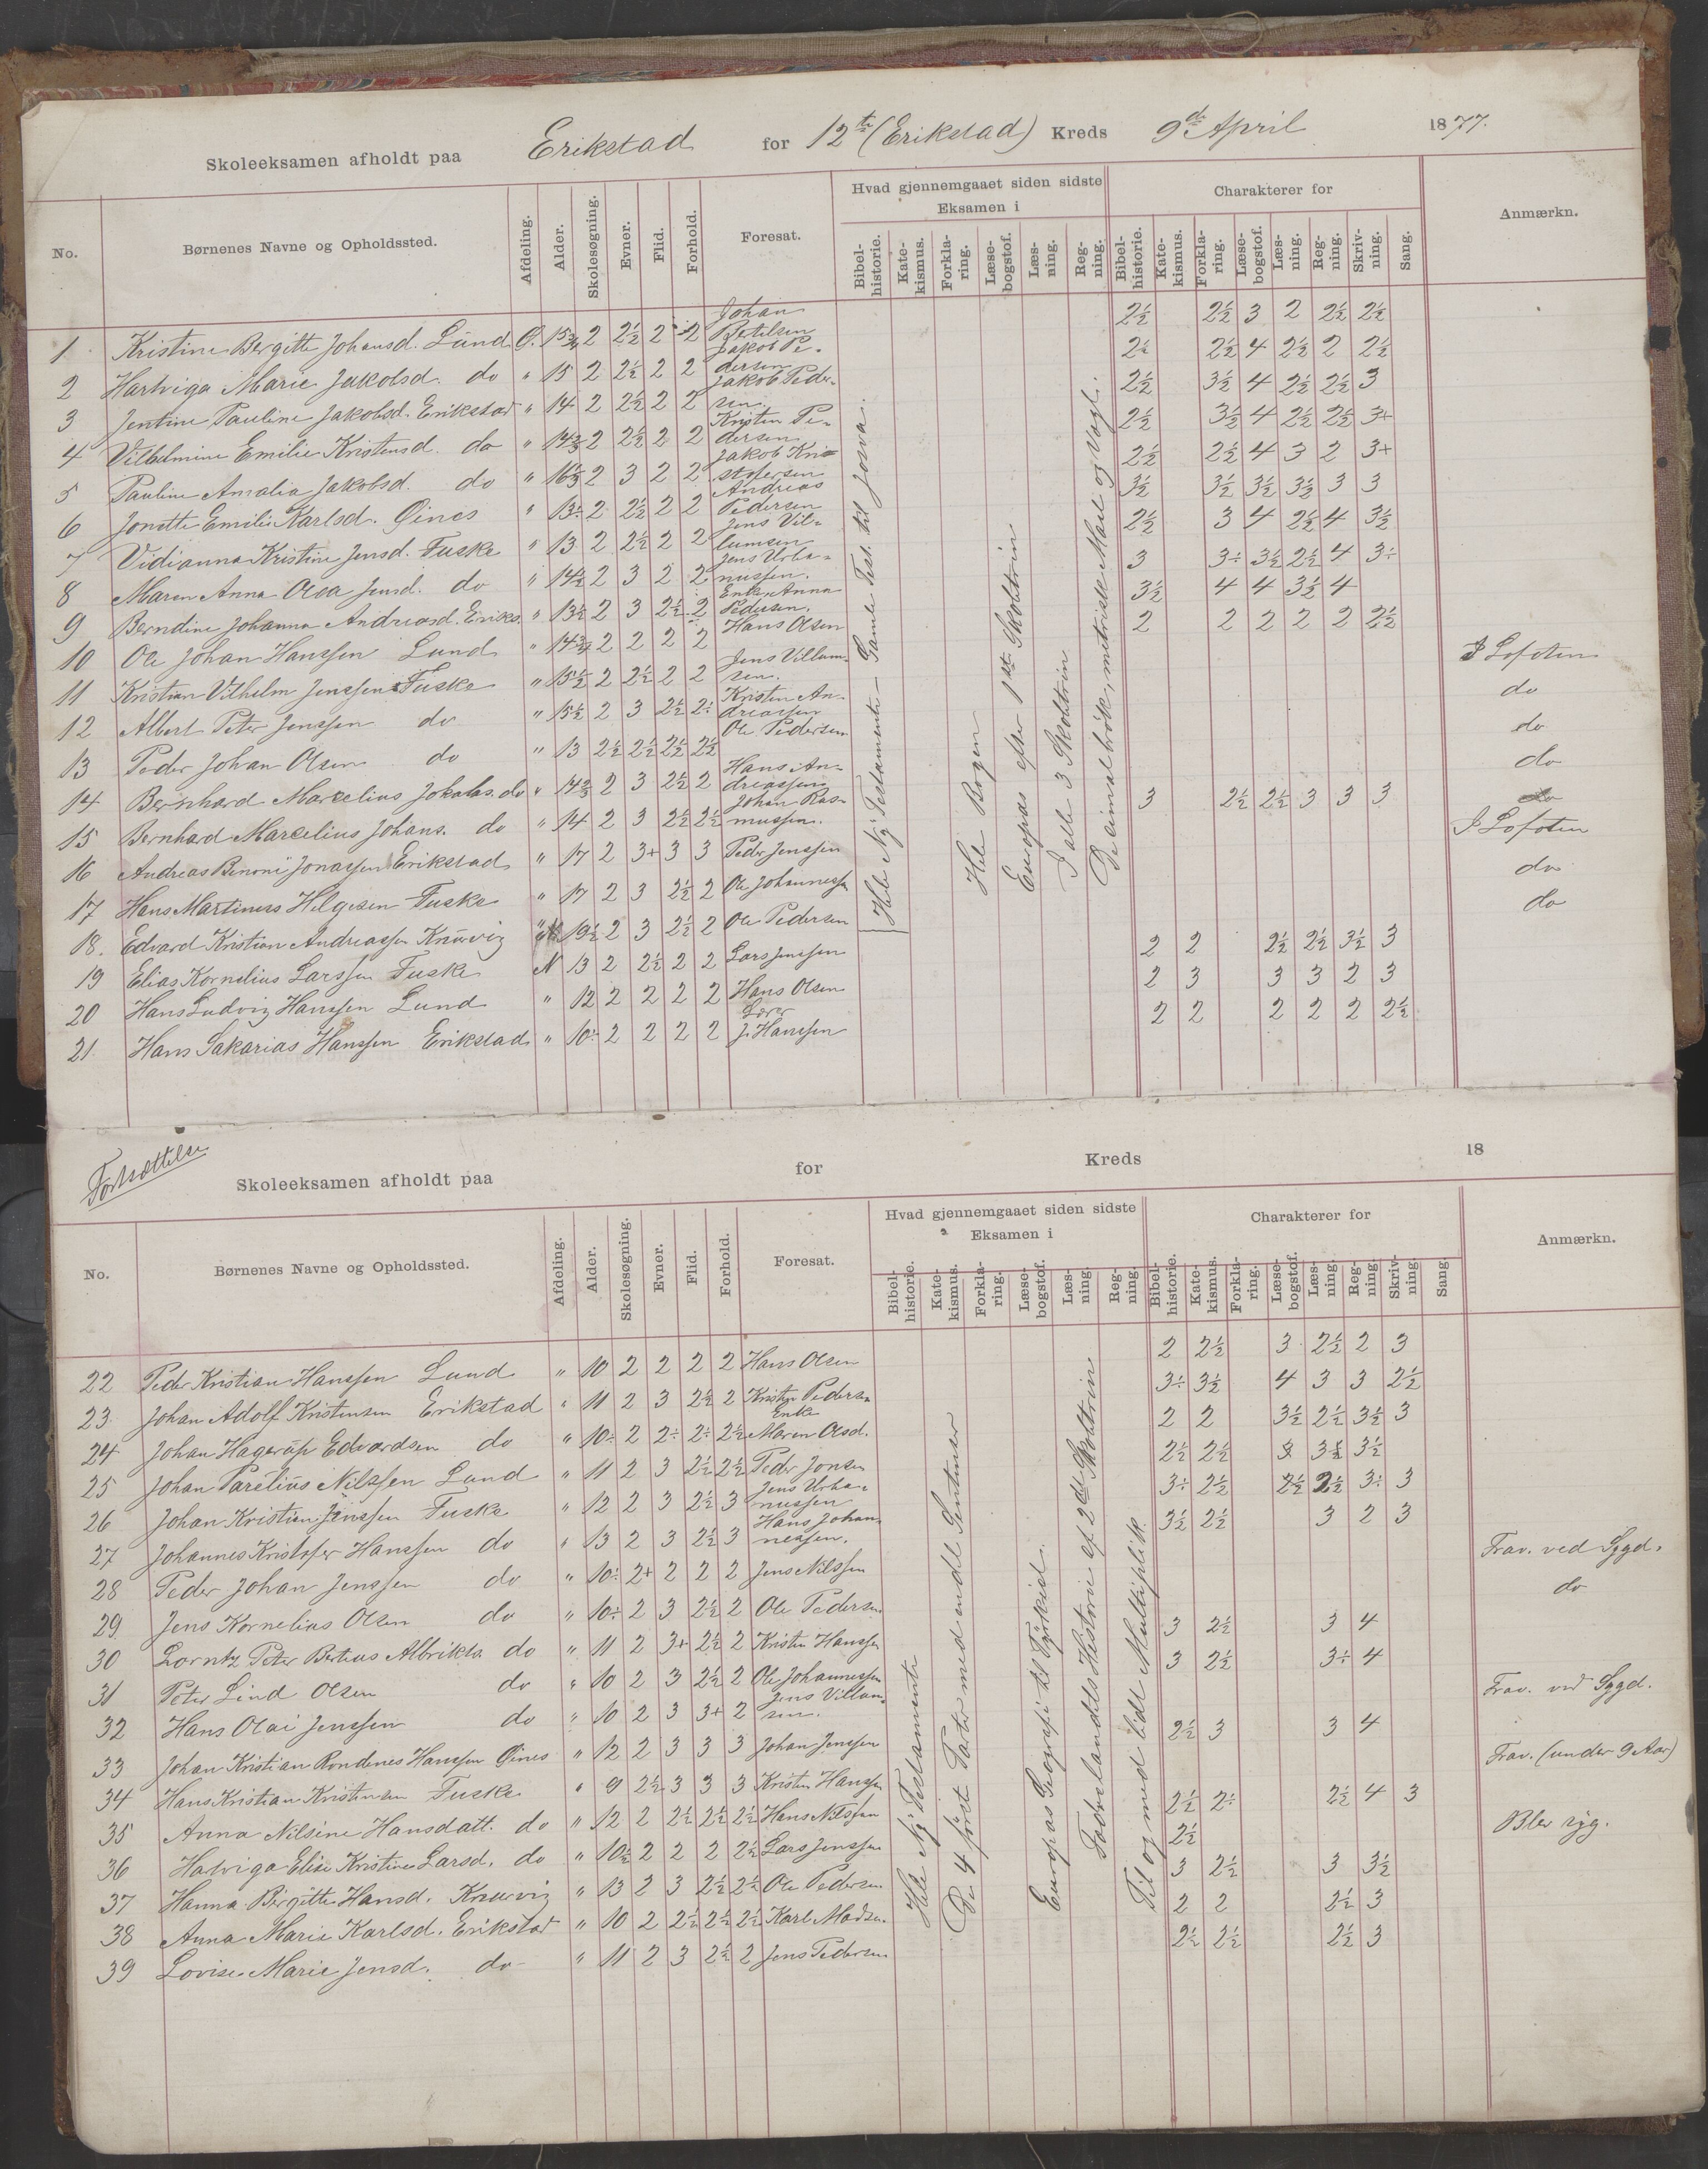 Skoleeksamen afholdt paa Erikstad for 12te (Erikstad) Kreds 9de April 1877.
No. Børnenes Navne og Opholdssted. Afdeling. Alder. Skolesøgning. Evner. Flid. Forhold. Foresat. Hvad gjennemgaaet siden sidste Eksamen i Charakterer for Anmærkn.
Bibelhistorie. Katekismus. Forklaring. Læsebogstof. Læsning. Regning. Bibelhistorie. Katekismus. Forklaring. Læsebogstof. Læsning. Regning. Skrivning. Sang.
1 Kristine Bergitte Johansd. Lund Ø. 15¾ 2 2½ 2 2 Johan Bertelsen 2½ 2½ 3 2 2½ 2½
2 Hartviga Marie Jakobsd. do " 15 2 2½ 2 2 Jakob Pedersen 2½ 2½ 4 2½ 2 2½
3 Jentine Pauline Jakobsd. Erikstad " 14 2 2½ 2 2 Jakob Pedersen. 2½ 3½ 4 2½ 2½ 3
4 Vilhelmine Emilie Kristensd. do " 14⅔ 2 2½ 2 2 Kristen Pedersen 2½ 3½ 4 2½ 2½ 3+
5 Pauline Amalia Jakobsd. do " 16⅓ 2 3 2 2 Jakob Kristofersen 2½ 2½ 4 3 2 3+
6 Jonette Emilie Karlsd. Øines " 13÷ 2 2½ 2 2 Andreas Pedersen 3½ 3½ 3½ 3½ 3 3
7 Vidianna Kristine Jensd. Fuske " 13 2 2½ 2 2 Jens Villumsen 2½ 3 4 2½ 4 3½
8 Maren Anna Olea Jensd. do " 14½ 2 3 2 2 Jens Urbanussen. 3 3÷ 3½ 2½ 4 3÷
9 Berndine Johanna Andreasd. Eriks. " 13½ 2 3 2½ 2 Enke Anna Pedersen. 3½ 4 4 3½ 4
10 Ole Johan Hanssen Lund " 14¾ 2 2 2 2 Hans Olsen 2 2 2 2 2 2½
11 Kristian Vilhelm Jenssen Fuske " 15½ 2 2½ 2 2 Jens Villumsen. I Lofoten
12 Albert Peter Jenssen do " 15½ 2 3 2½ 2÷ Kristen Andreassen do
13 Peder Johan Olsen do " 13 2½ 2½ 2½ 2½ Ole Pedersen do
14 Bernhard Marcelius Jakobs. do " 14⅔ 2 3 2½ 2 Hans Andreassen do
15 Bernhard Marcelius Johans. do " 14 2 3 2½ 2½ Johan Rasmussen. 3 2½ 2½ 3 3 3
16 Andreas Benoni Jonassen Erikstad " 17 2 3+ 3 3 Peder Jenssen I Lofoten
17 Hans Martinus Helgesen Fuske " 17 2 3 2½ 2 Ole Johannessen do
18. Edvard Kristian Andreassen Knævig " 19½ 2 3 2½ 2 Ole Pedersen do
19 Elias Kornelius Larssen Fuske N 13 2 2½ 2 2 Lars Jenssen 2 2 2½ 2½ 3½ 3
20 Hans Ludvig Hanssen Lund " 12 2 2 2 2 Hans Olsen 2 3 3 3 2 3
21. Hans Sakarias Hanssen Erikstad " 10÷ 2 2 2 2 Lærer J. Hanssen 2 2 2 2 2 2½
Hele Ny Testamente – Gamle Test. til Josva.
Hele Bogen
Europas efter 1ste Skoltrin
I alle 3 Skoltrin
Decimalbrøk, metriske Maal og Vægt.
Fortsættelse
Skoleeksamen afholdt paa for Kreds 18
No. Børnenes Navne og Opholdssted. Afdeling. Alder. Skolesøgning. Evner. Flid. Forhold. Foresat. Hvad gjennemgaaet siden sidste Eksamen i Charakterer for Anmærkn.
Bibelhistorie. Katekismus. Forklaring. Læsebogstof. Læsning. Regning. Bibelhistorie. Katekismus. Forklaring. Læsebogstof. Læsning. Regning. Skrivning Sang.
22 Peder Kristian Hanssen Lund " 10 2 2 2 2 Hans Olsen 2 2½ 3 2½ 2 3
23. Johan Adolf Kristensen Erikstad " 11 2 3 2½ 2 Kristen Pedersen 3÷ 3½ 4 3 3 2½
24 Johan Hagerup Edvardsen do " 10÷ 2 2÷ 2÷ 2½ Enke Maren Olsd. 2 2 3½ 2½ 3½ 3
25 Johan Parelius Nilssen Lund " 11 2 3 2½ 2½ Peder Jonsen 2½ 2½ 3½ 3½
26 Johan Kristian Jenssen Fuske " 12 2 3 2½ 3 Jens Urbanussen 3÷ 2½ 2½ 2½ 3÷ 3
27 Johannes Kristofer Hanssen do " 13 2 3 2½ 3 Hans Johannessen. 3½ 2½ 3 2 3
28 Peder Johan Jenssen do " 10÷ 2+ 2 2 2 Jens Nilssen Frav. ved Sygd.
29. Jens Kornelius Olsen do " 10÷ 2 3 2½ 2 Ole Pedersen do
30 Lorntz Peter Berteus Albrikts. do " 11 2 3+ 2½ 2 Kristen Hanssen 3 2½ 3 4
31 Peter Lind Olsen do " 10 2 3 2½ 2 Ole Johannessen 3 2½ 3÷ 4
32 Hans Olai Jenssen do " 10 2 3 3+ 2 Jens Villumsen. Frav. ved Sygd.
33 Johan Kristian Rondenes Hanssen Øines " 12 2 3 3 3 Johan Jenssen 2½ 3 3 4
34 Hans Kristian Kristensen Fuske " 9 2½ 3 3 3 Kristen Hanssen Frav. (under 9 Aar)
35 Anna Nilsine Hansdatt. do " 12 2 2½ 2½ 2½ Hans Nilssen 2½ 2÷ 2½ 4 3
36 Hatviga Elise Kristine Larsd. do " 10½ 2 2 2 2½ Lars Jenssen 2½ Blev syg.
37 Hanna Birgitte Hansd. Knævig " 13 2 3 2½ 2½ Ole Pedersen 3 2½ 3 3½
38 Anna Marie Karlsd. Erikstad " 10 2 2½ 2½ 2½ Karl Madsen. 2 2 2½ 3
39 Lovise Marie Jensd. do " 11 2 3 2½ 2 Jens Pedersen 2½ 2½ 2½ 3
Hele Ny Testamente
De 4 først Parter med endel Sentenser
Europas Geografi til Tyrkiet.
Fædrelandets Historie ef 2det Skoltrin
Til og med Edl Multiplik.